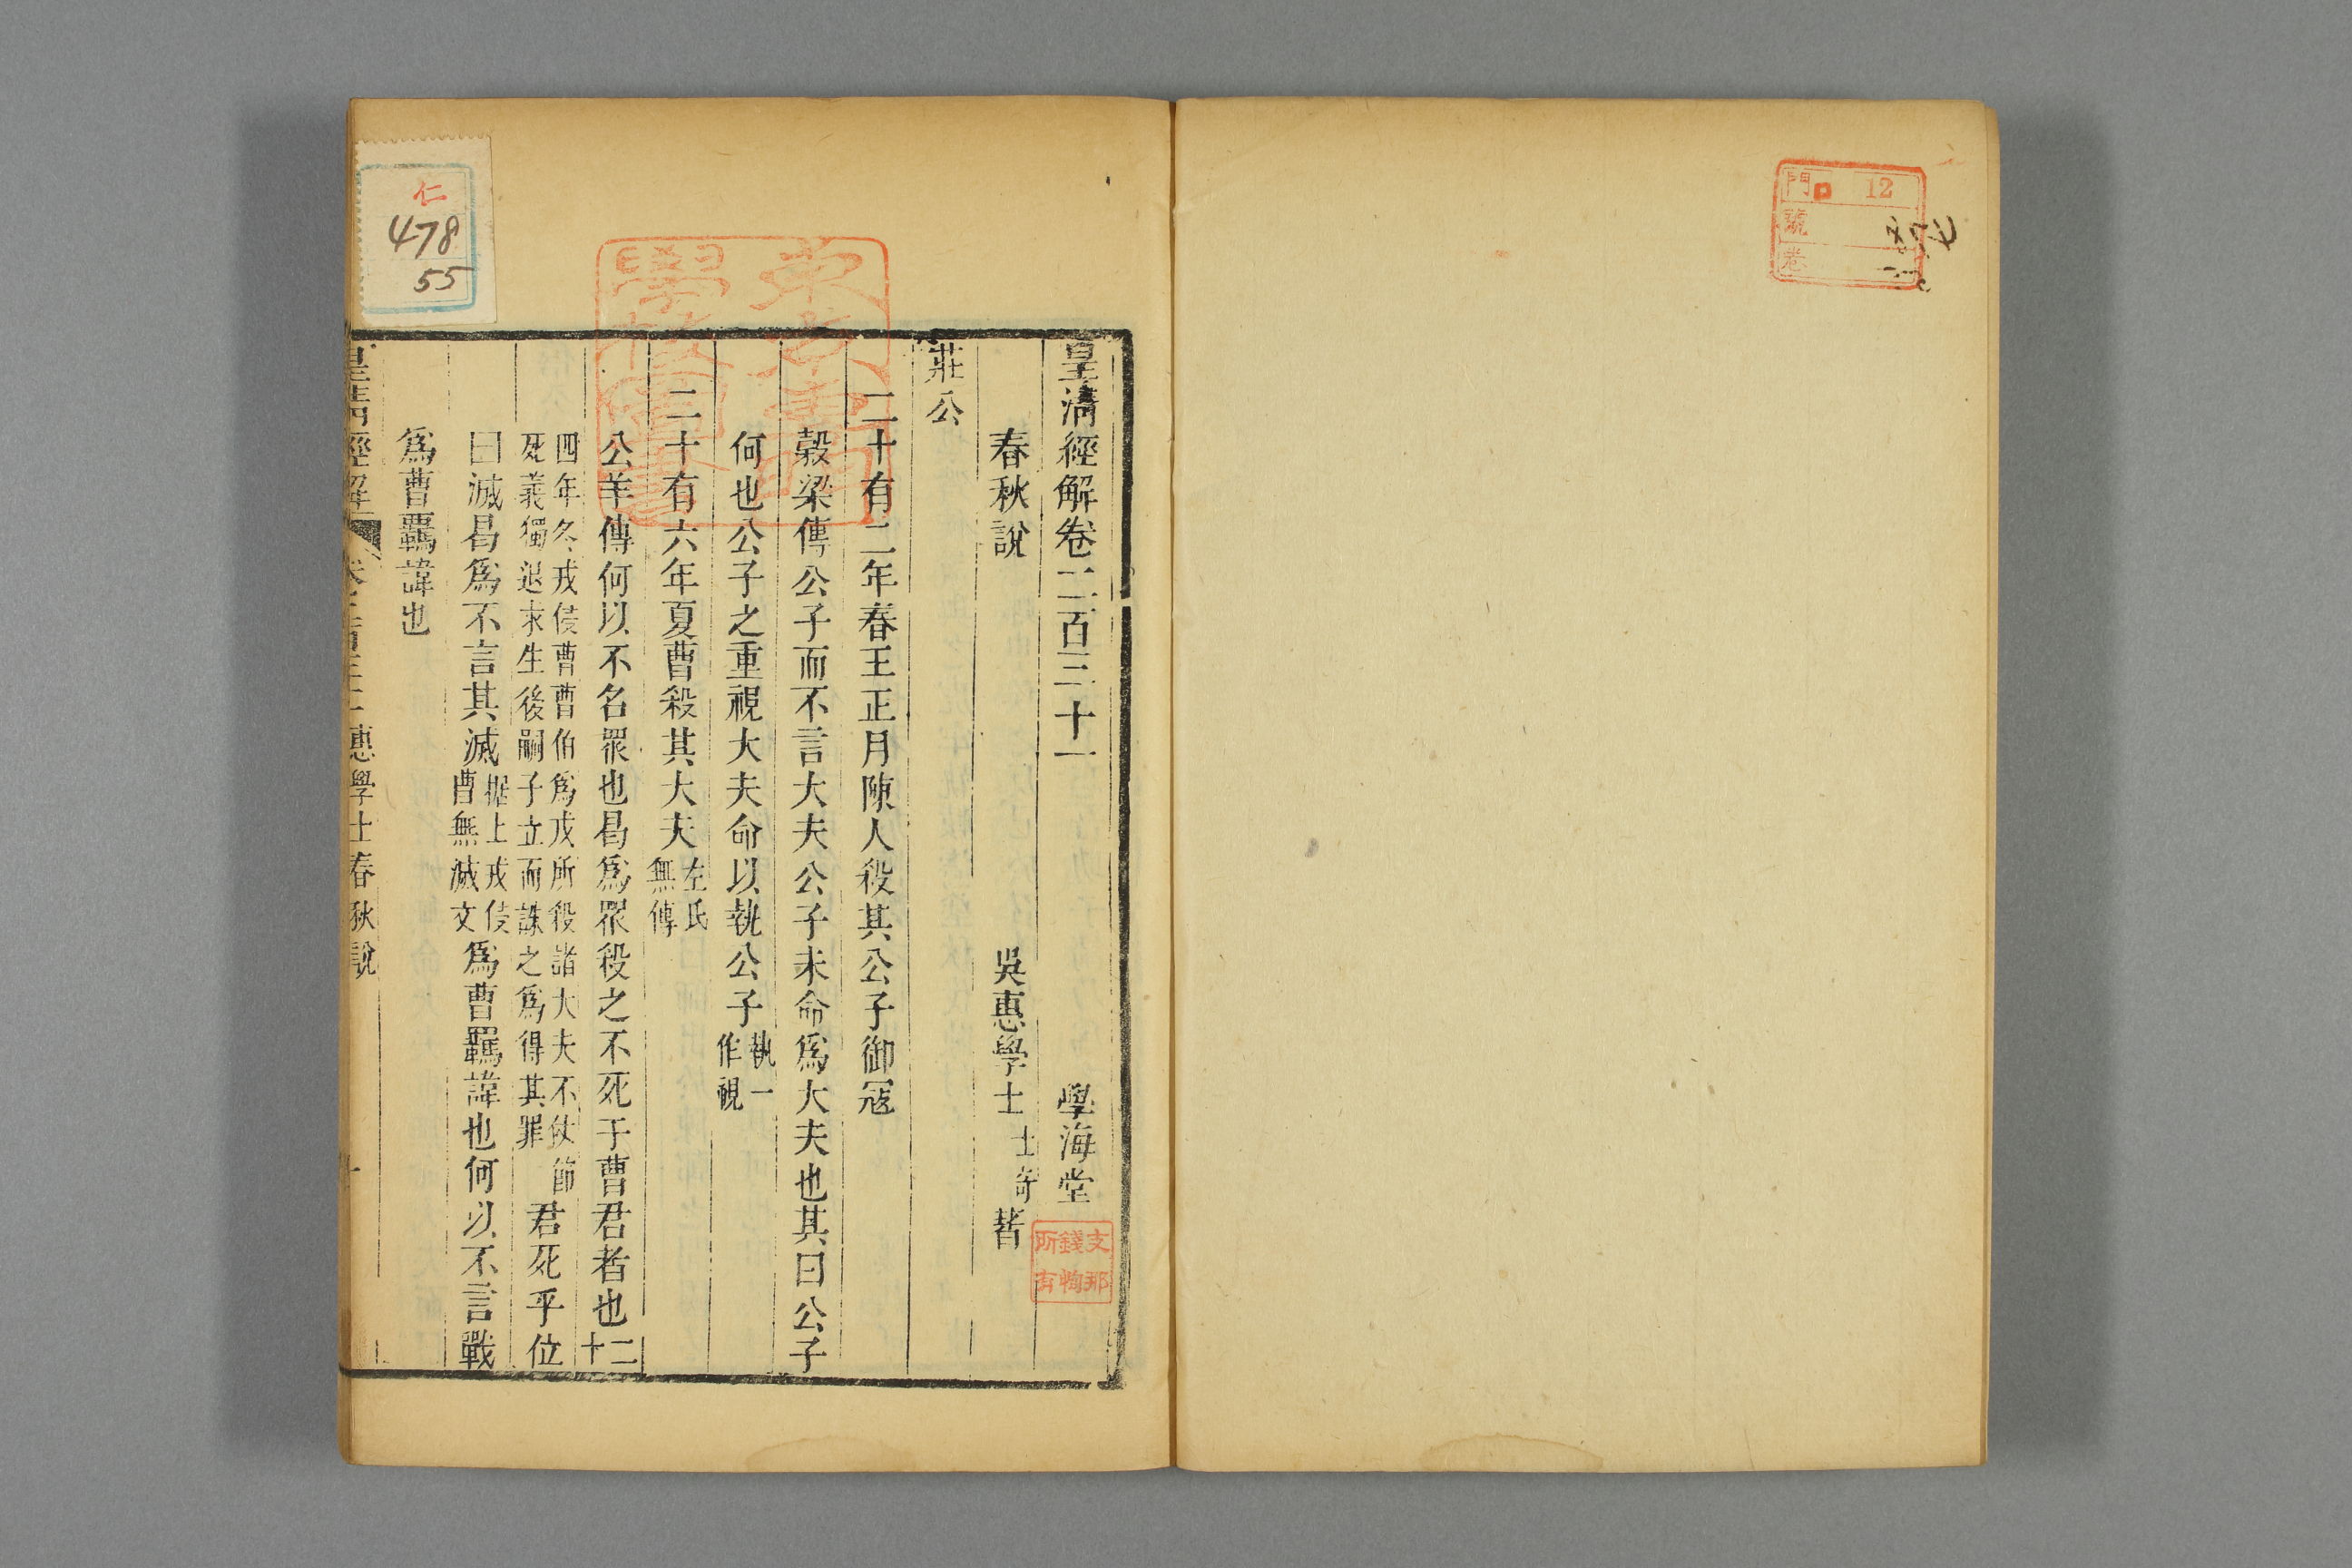 門 12
號
卷
皇清經解卷二百三十一 學海堂
春秋說 吳惠學士士奇著
莊公
二十有二年春王正月陳人殺其公子御寇
穀梁傳公子而不言大夫公子未命爲大夫也其曰公子
何也公子之重視大夫命以執公子執一作視
二十有六年夏曹殺其大夫左氏無傳
公羊傳何以不名眾也曷爲眾殺之不死于曹君者也二十
四年冬戎侵曹曹伯爲戎所殺諸大夫不仗節死義獨退求生後嗣子立而誅之爲得其罪君死乎位
曰滅曷爲不言其滅據上戎侵曹無滅文爲曹羈諱也何以不言戰
爲曹羈諱也
皇清經解 惠學士春秋說
支那
錢恂
所有
仁
478
55